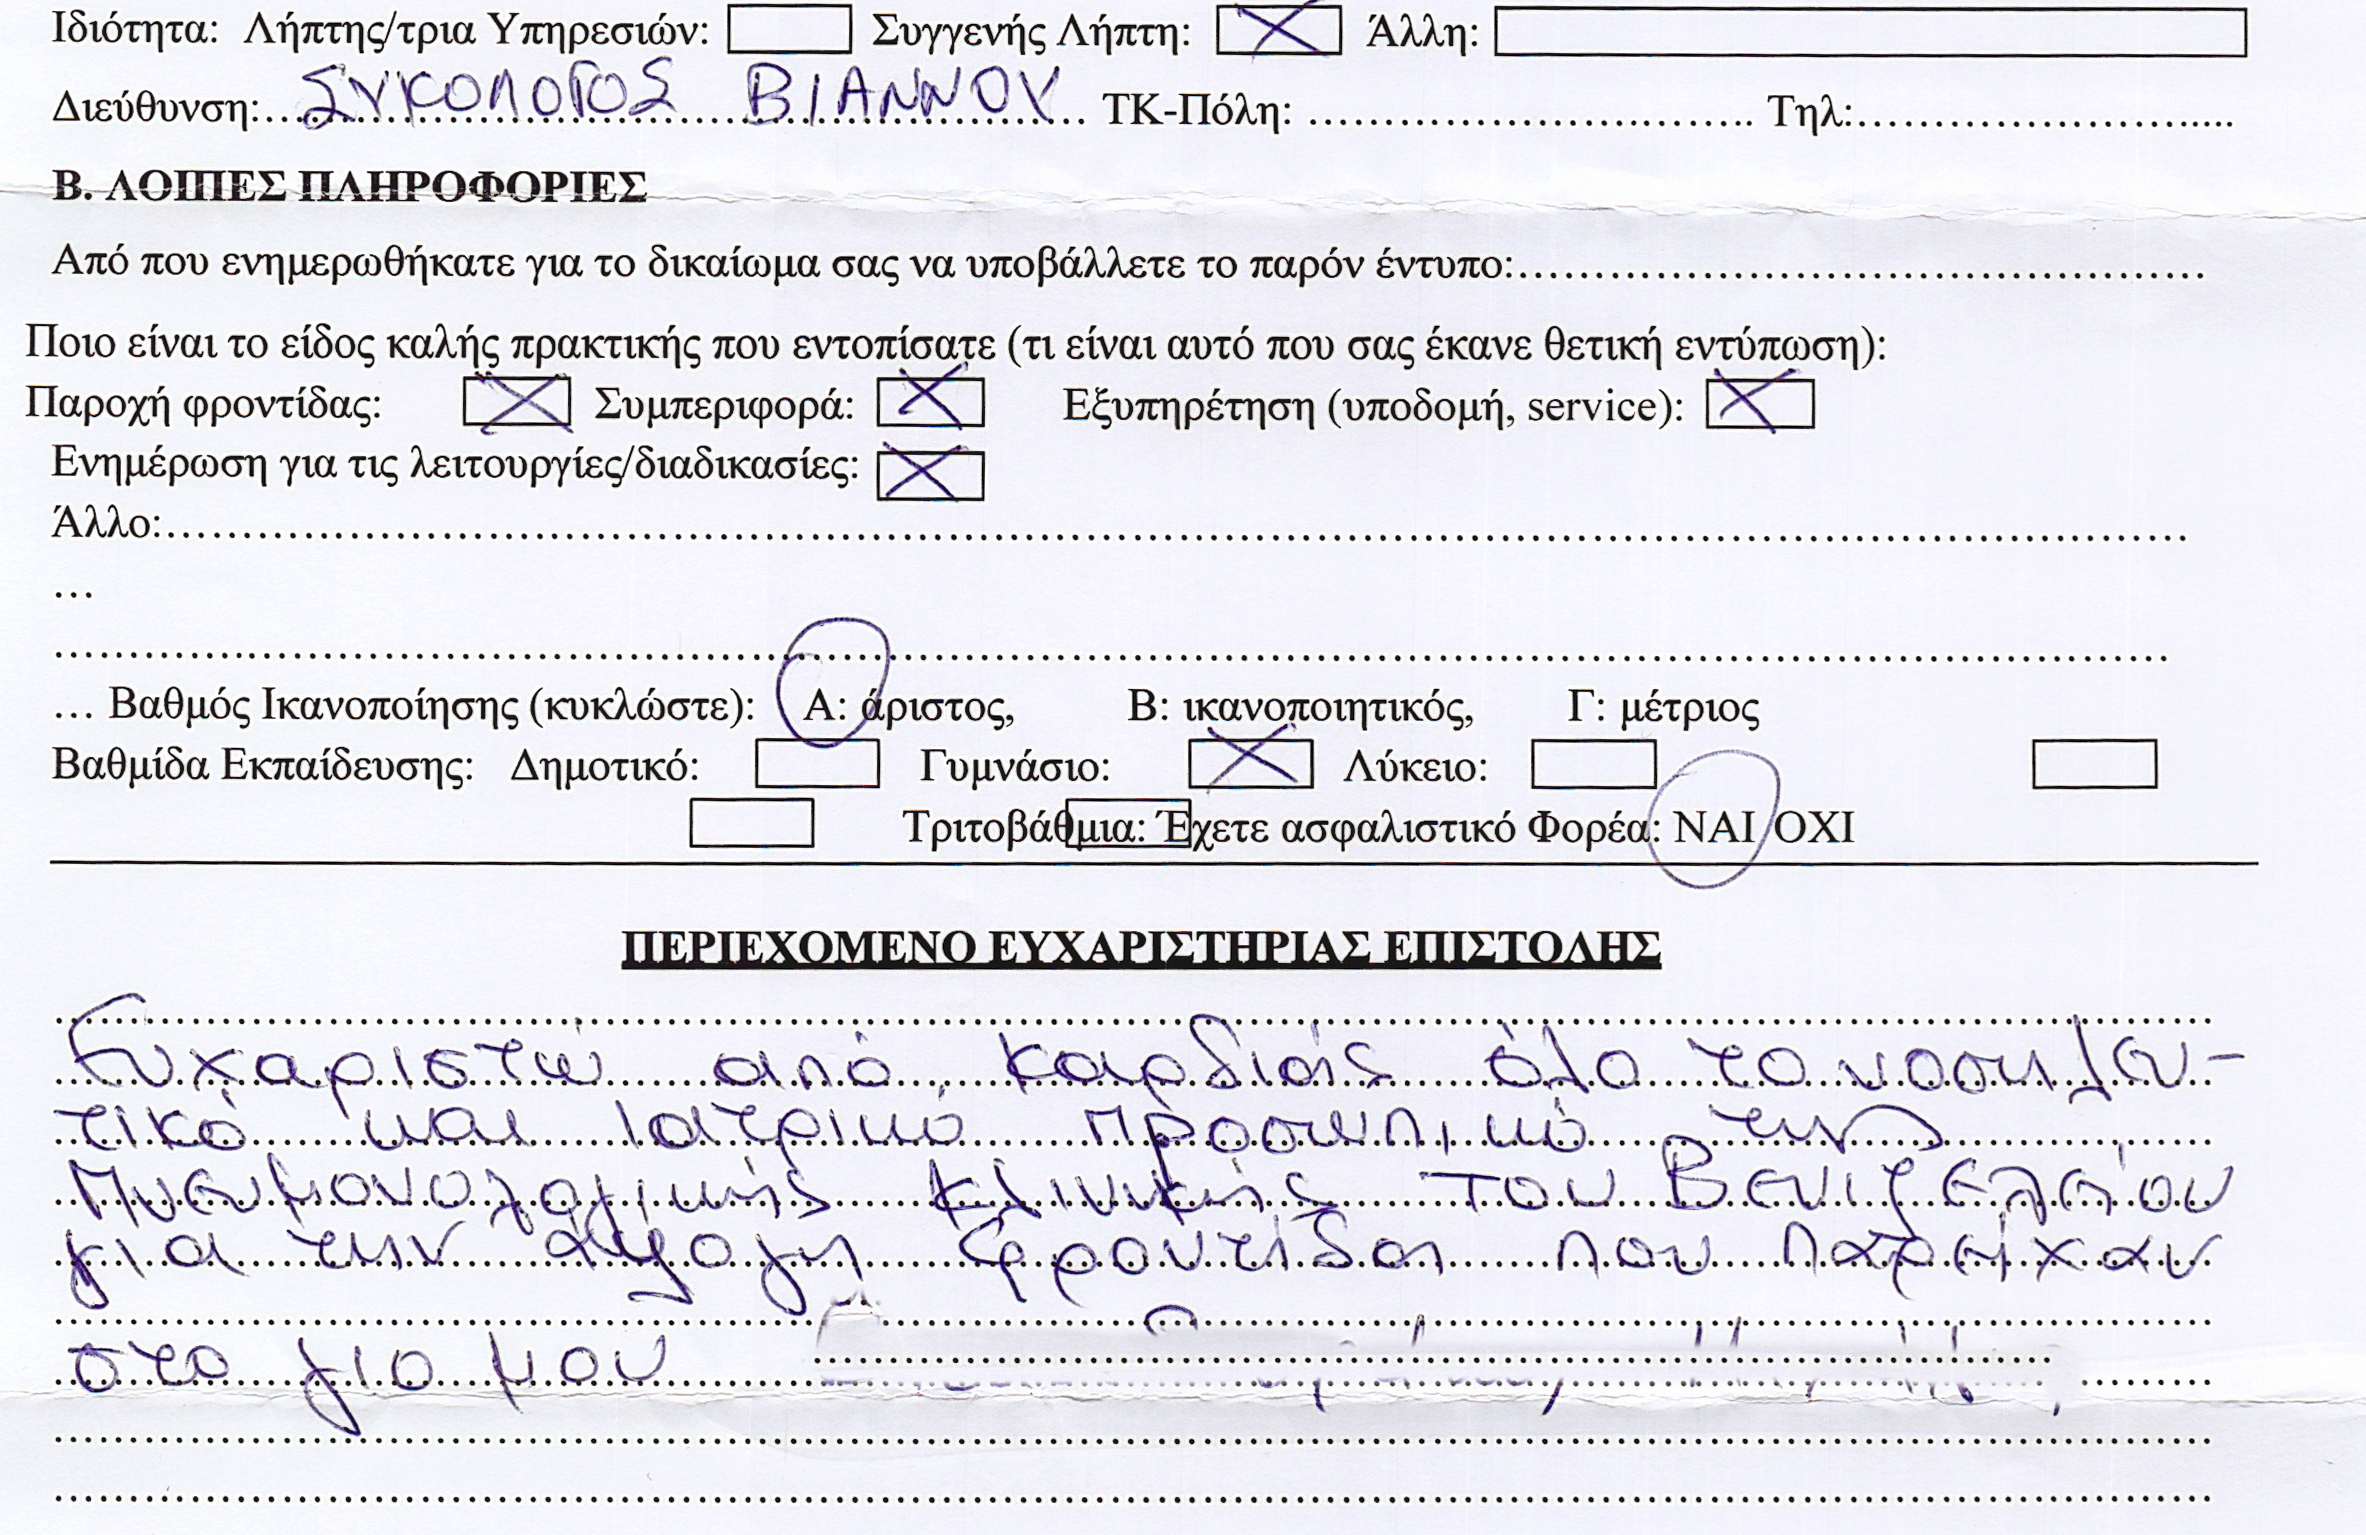 Ιδιότητα: Λήπτης/τρια Υπηρεσιών: Συγγενής Λήπτη: Άλλη:
Διεύθυνση:.... ΣΥΚΟΛΟΓΟΣ ΒΙΑΝΝΟΥ ... ΤΚ-Πόλη: ................................ Τηλ:............................
Β. ΛΟΙΠΕΣ ΠΛΗΡΟΦΟΡΙΕΣ
Από που ενημερωθήκατε για το δικαίωμα σας να υποβάλλετε το παρόν έντυπο:................................................
Ποιο είναι το είδος καλής πρακτικής που εντοπίσατε (τι είναι αυτό που σας έκανε θετική εντύπωση):
Παροχή φροντίδας: Συμπεριφορά: Εξυπηρέτηση (υποδομή, service):
Ενημέρωση για τις λειτουργίες/διαδικασίες:
Άλλο:................................................................................
...
... Βαθμός Ικανοποίησης (κυκλώστε): Α: άριστος, Β: ικανοποιητικός, Γ: μέτριος
Βαθμίδα Εκπαίδευσης: Δημοτικό: Γυμνάσιο: Λύκειο:
Τριτοβάθμια: Έχετε ασφαλιστικό Φορέα: ΝΑΙ ΟΧΙ
ΠΕΡΙΕΧΟΜΕΝΟ ΕΥΧΑΡΙΣΤΗΡΙΑΣ ΕΠΙΣΤΟΛΗΣ
Ευχαριστώ από καρδιάς όλο το νοσηλευ-
τικό και ιατρικό προσωπικό της
Πνευμονολογικής κλινικής του Βενιζελείου
για την άψογη φροντίδα που παρείχαν
στο γιο μου